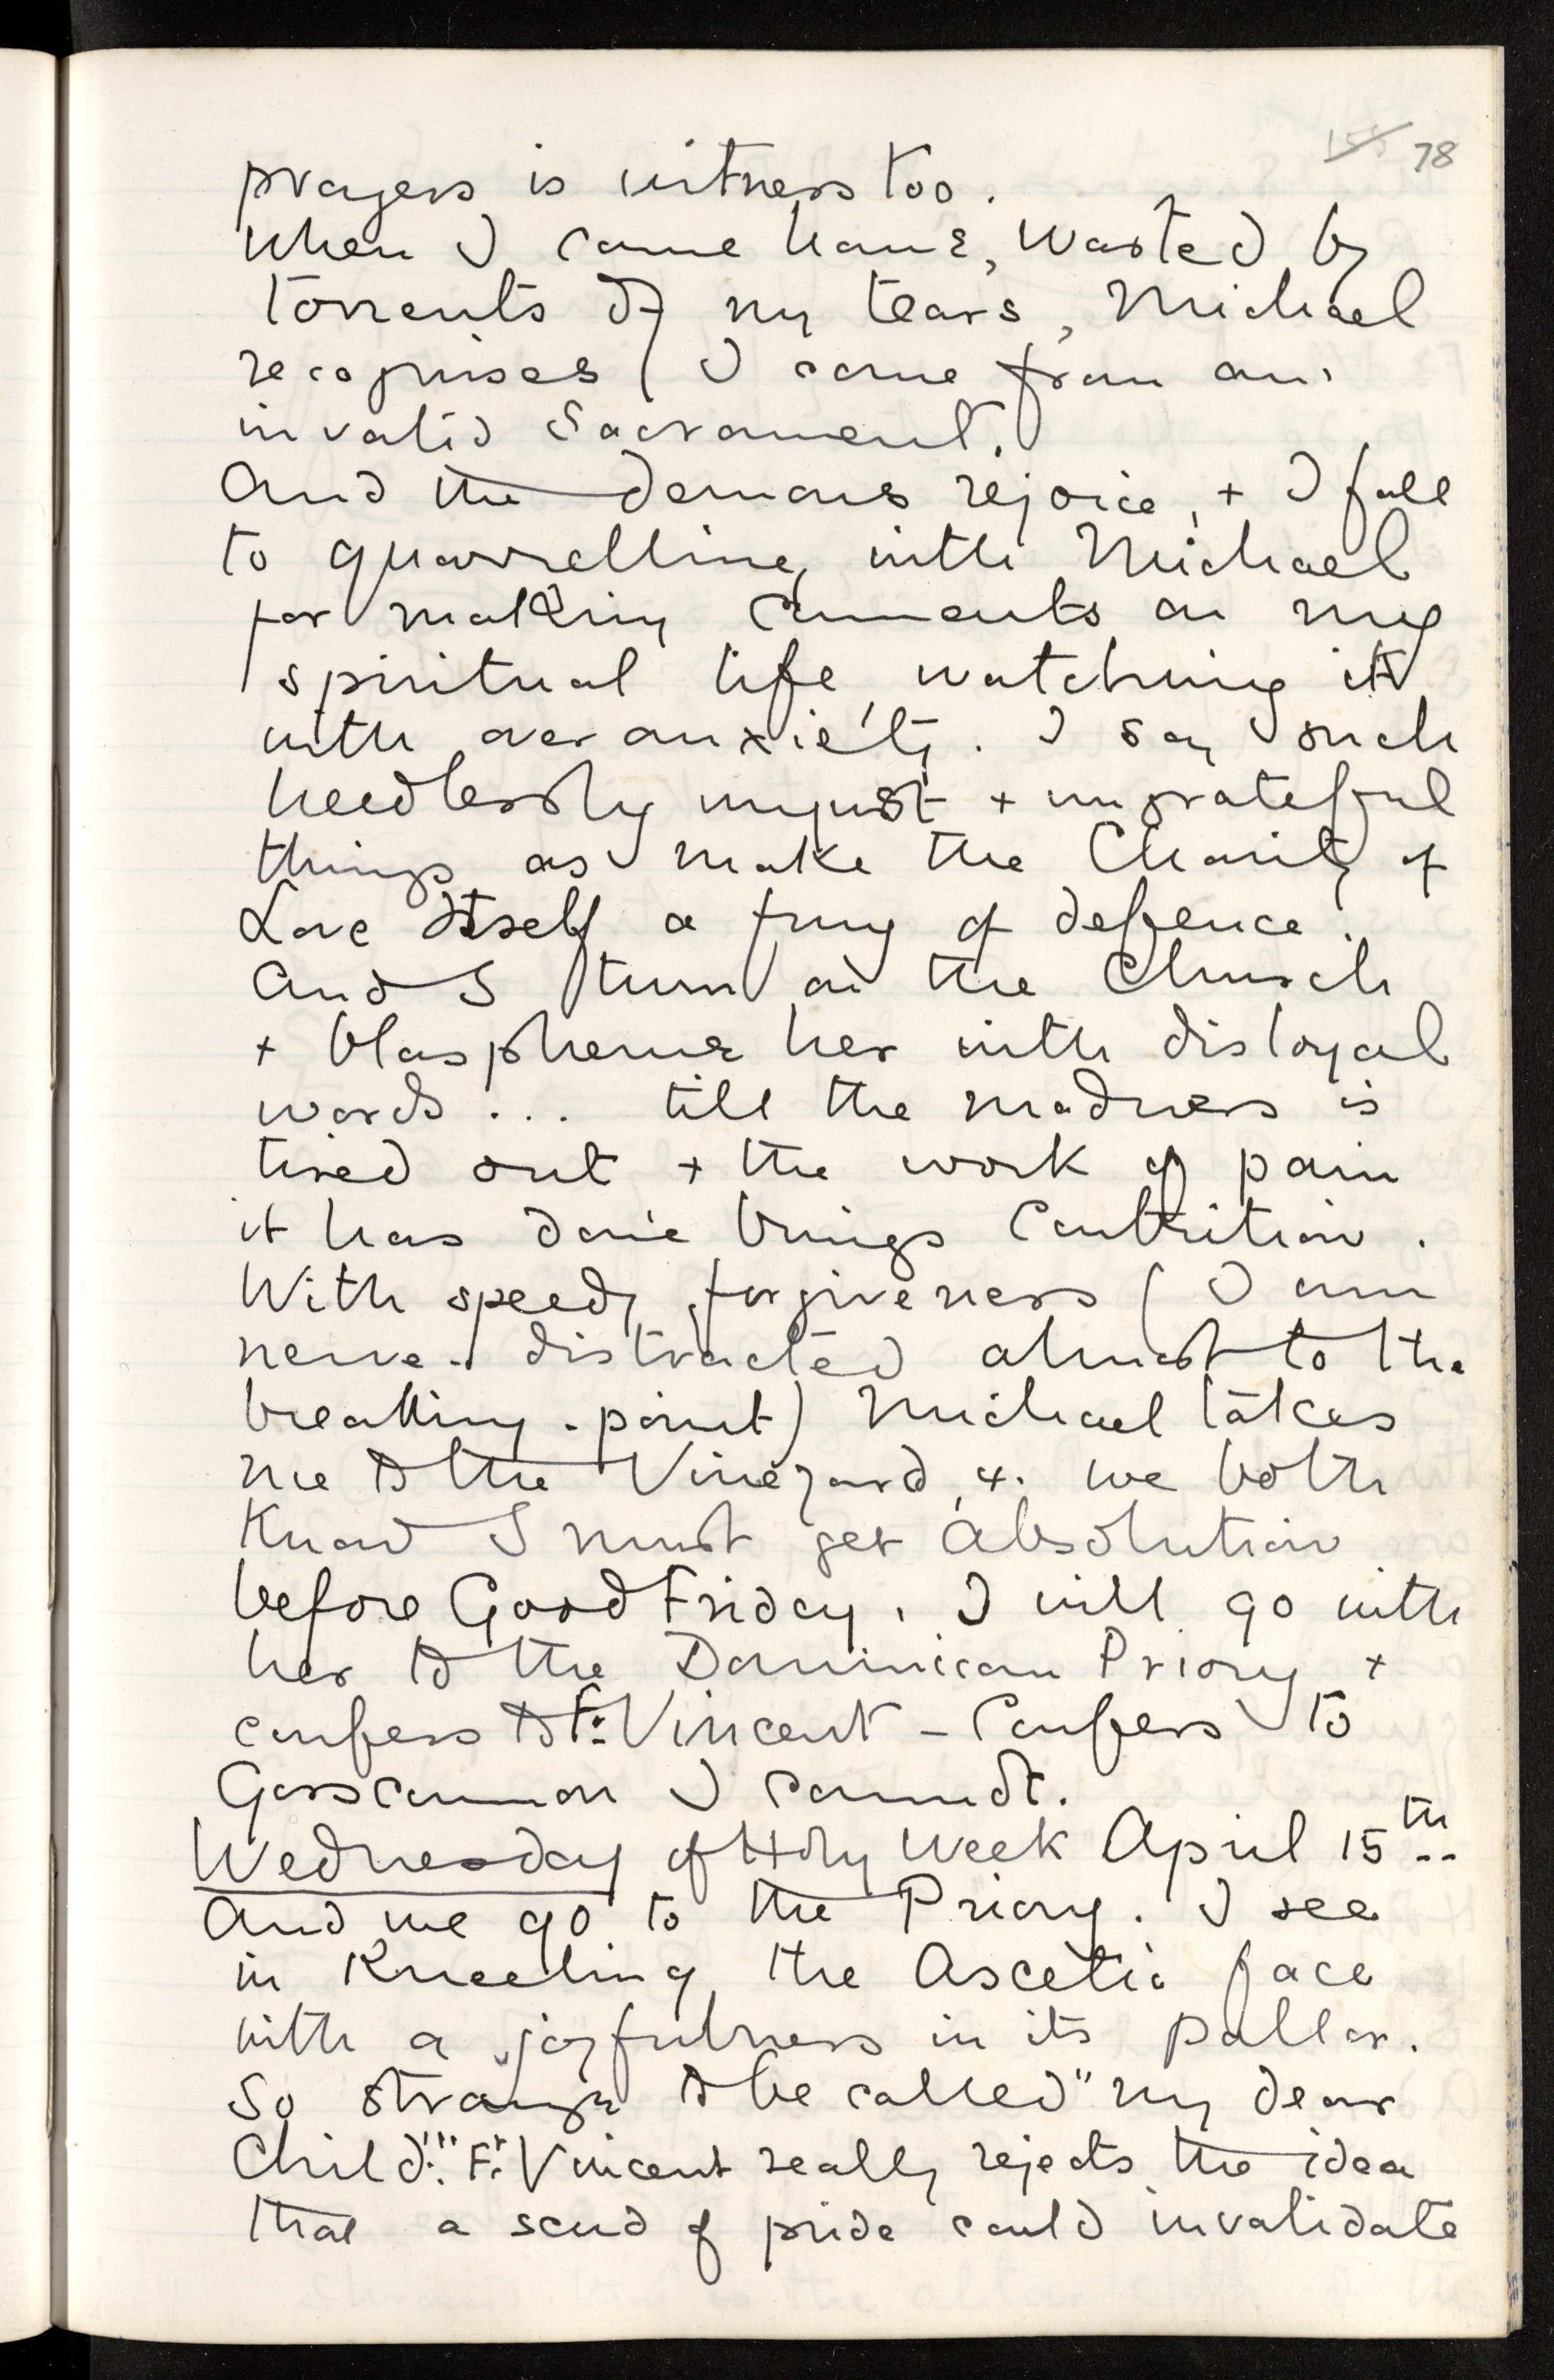 155 78
prayers is witness too.
When I come home, wasted by
torrents of my tears, Michael
recognises I come from an
invalid Sacrament.
And the demons rejoice, + I fall
to quarrelling with Michael
for making comments on my
spiritual life, watching it
with over anxiety. I say such
heedlessly unjust + ungrateful
things as make the Charity of
Love Itself a fury of defence.
And I turn on the Church
+ blaspheme her with disloyal
words ... till the madness is
tired out + the work of pain
it has done brings Contrition.
With speedy forgiveness (I am
nerve-distracted almost to the
breaking-point) Michael takes
me to the Vineyard, +. we both
Know I must get Absolution
before Good Friday. I will go with
her to the Dominican Priory +
confess to Fr. Vincent - Confess to
Goscannon I cannot.
Wednesday of Holy Week April 15th
And we go to the Priory. I see
in Kneeling the Ascetic face
with a joyfulness in its pallor.
So strange to be called "my dear
Child!" Fr. Vincent really rejects the idea
that a scud of pride could invalidate